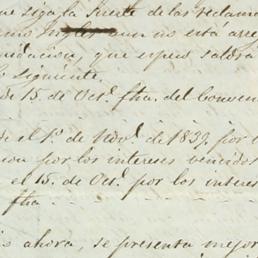 que siga la suerte de las reclama
como aun no está arre
redaccion, que espero saldrá
lo siguiente.
de 15 de Oct.e fha. del Conven
de el 1.o de Nov.e de 1839. por
cion por los intereses vencidos
el 15. de Oct.e por los interes
fha.
ahora, se presenta mejor